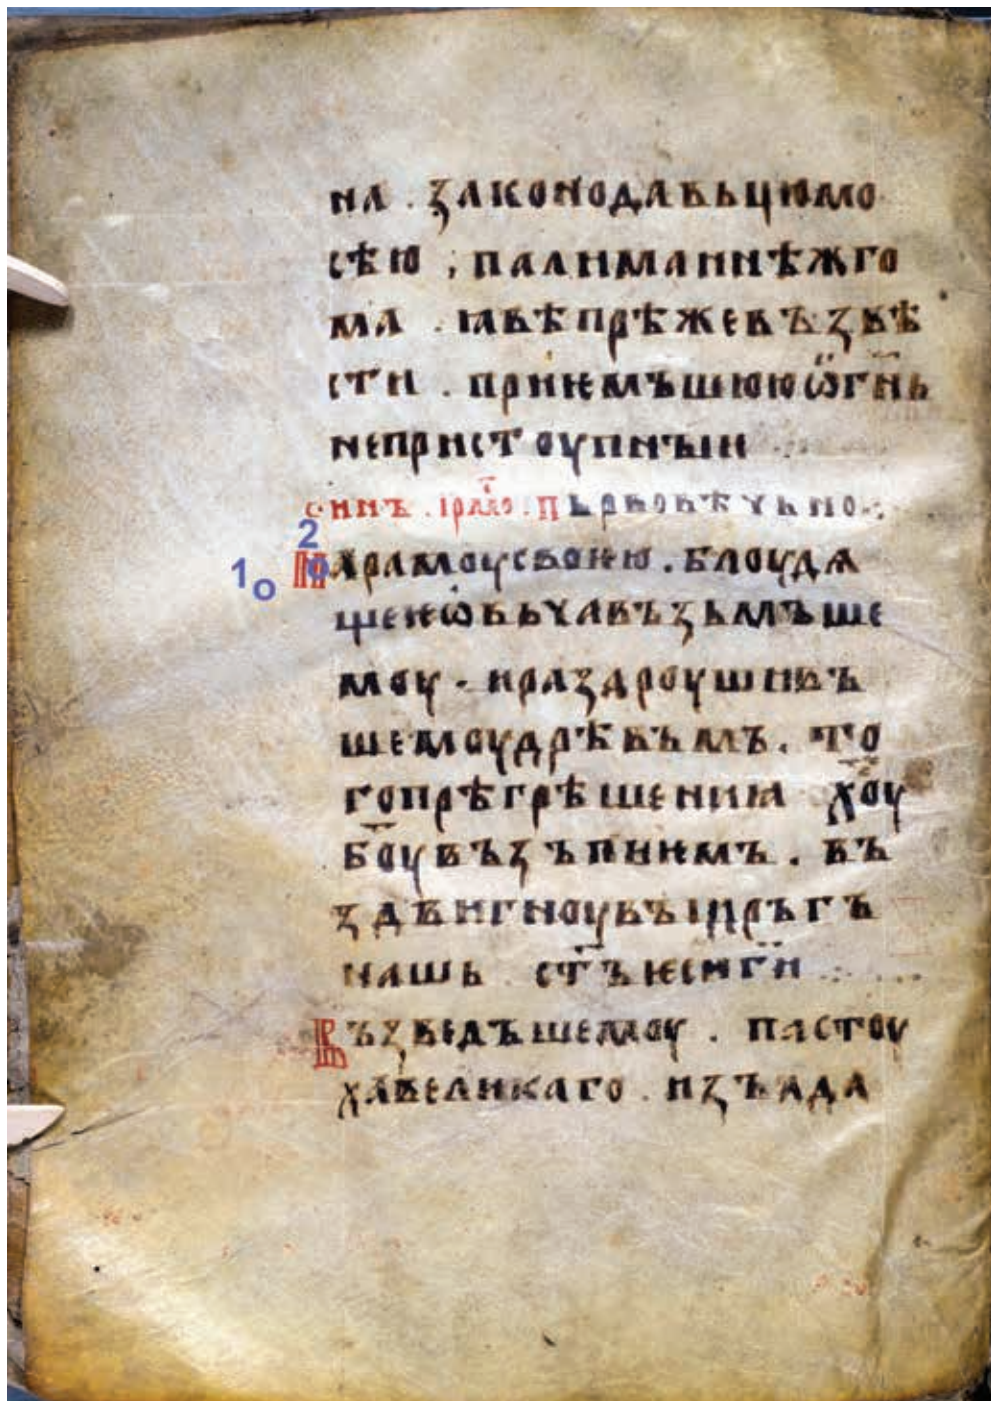 на . законодавьцюмо
сѣю , палимаинѣжго
ма . ꙗвѣпрѣжевъзвѣ
сти . приѥмъшюю ѡгнь
непристоупныи
инъ . ірмо . пьрвовѣчьно
На рамоусвоѥю . блоудѧ
щеѥ ѡвьчавъзьмъше
моу . и раздроушивъ
шемоудрѣвъмь . то
го прѣгрѣшениꙗ хоу
боувъзъпиѥмъ . въ
здвигноувыи рьгъ
нашь стъ ѥси ги
Възведъшемоу . пастоу
хавеликаго . изъада
2
1